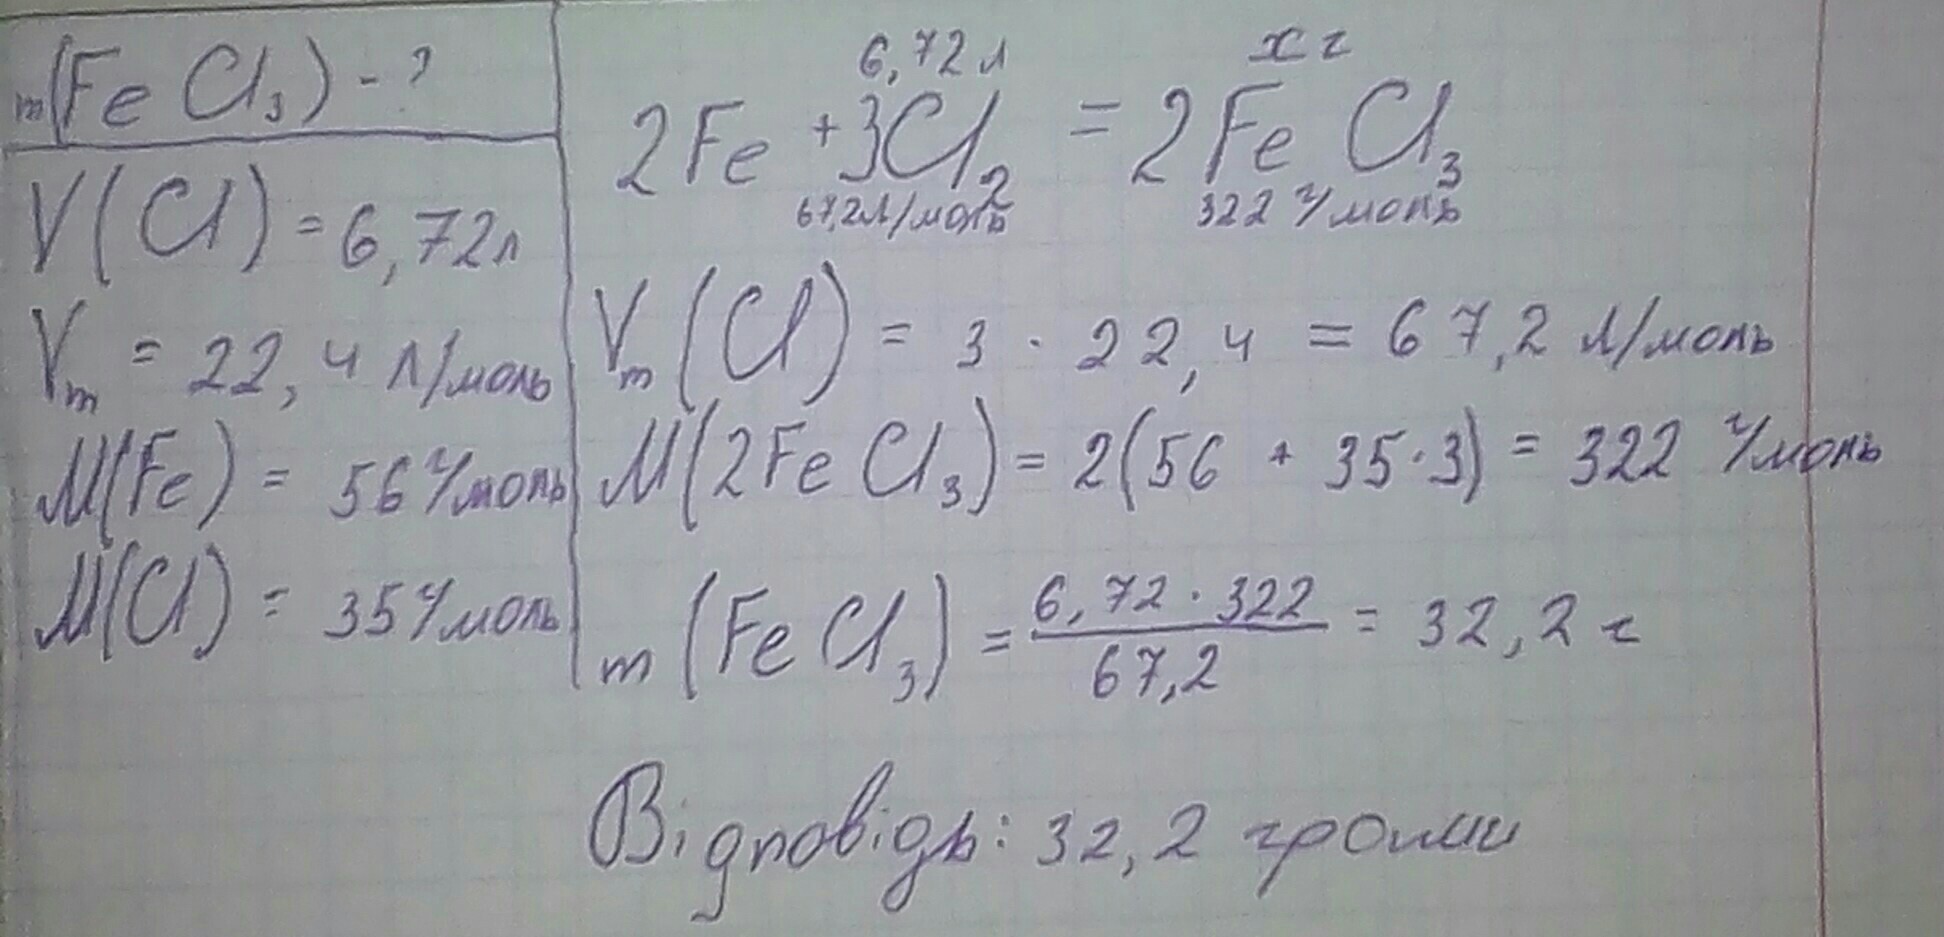 m(FeCl₃) - ?
V(Cl) = 6,72л
Vm = 22,4 л/моль
M(Fe) = 56 г/моль
M(Cl) = 35 г/моль
6,72 л х г
2Fe + 3Cl₂ = 2FeCl₃
67,2л/моль 322 г/моль
Vm(Cl) = 3 · 22,4 = 67,2 л/моль
M(2FeCl₃) = 2(56 + 35·3) = 322 г/моль
m(FeCl₃) = 6,72 · 322 / 67,2 = 32,2 г
Відповідь: 32,2 грами